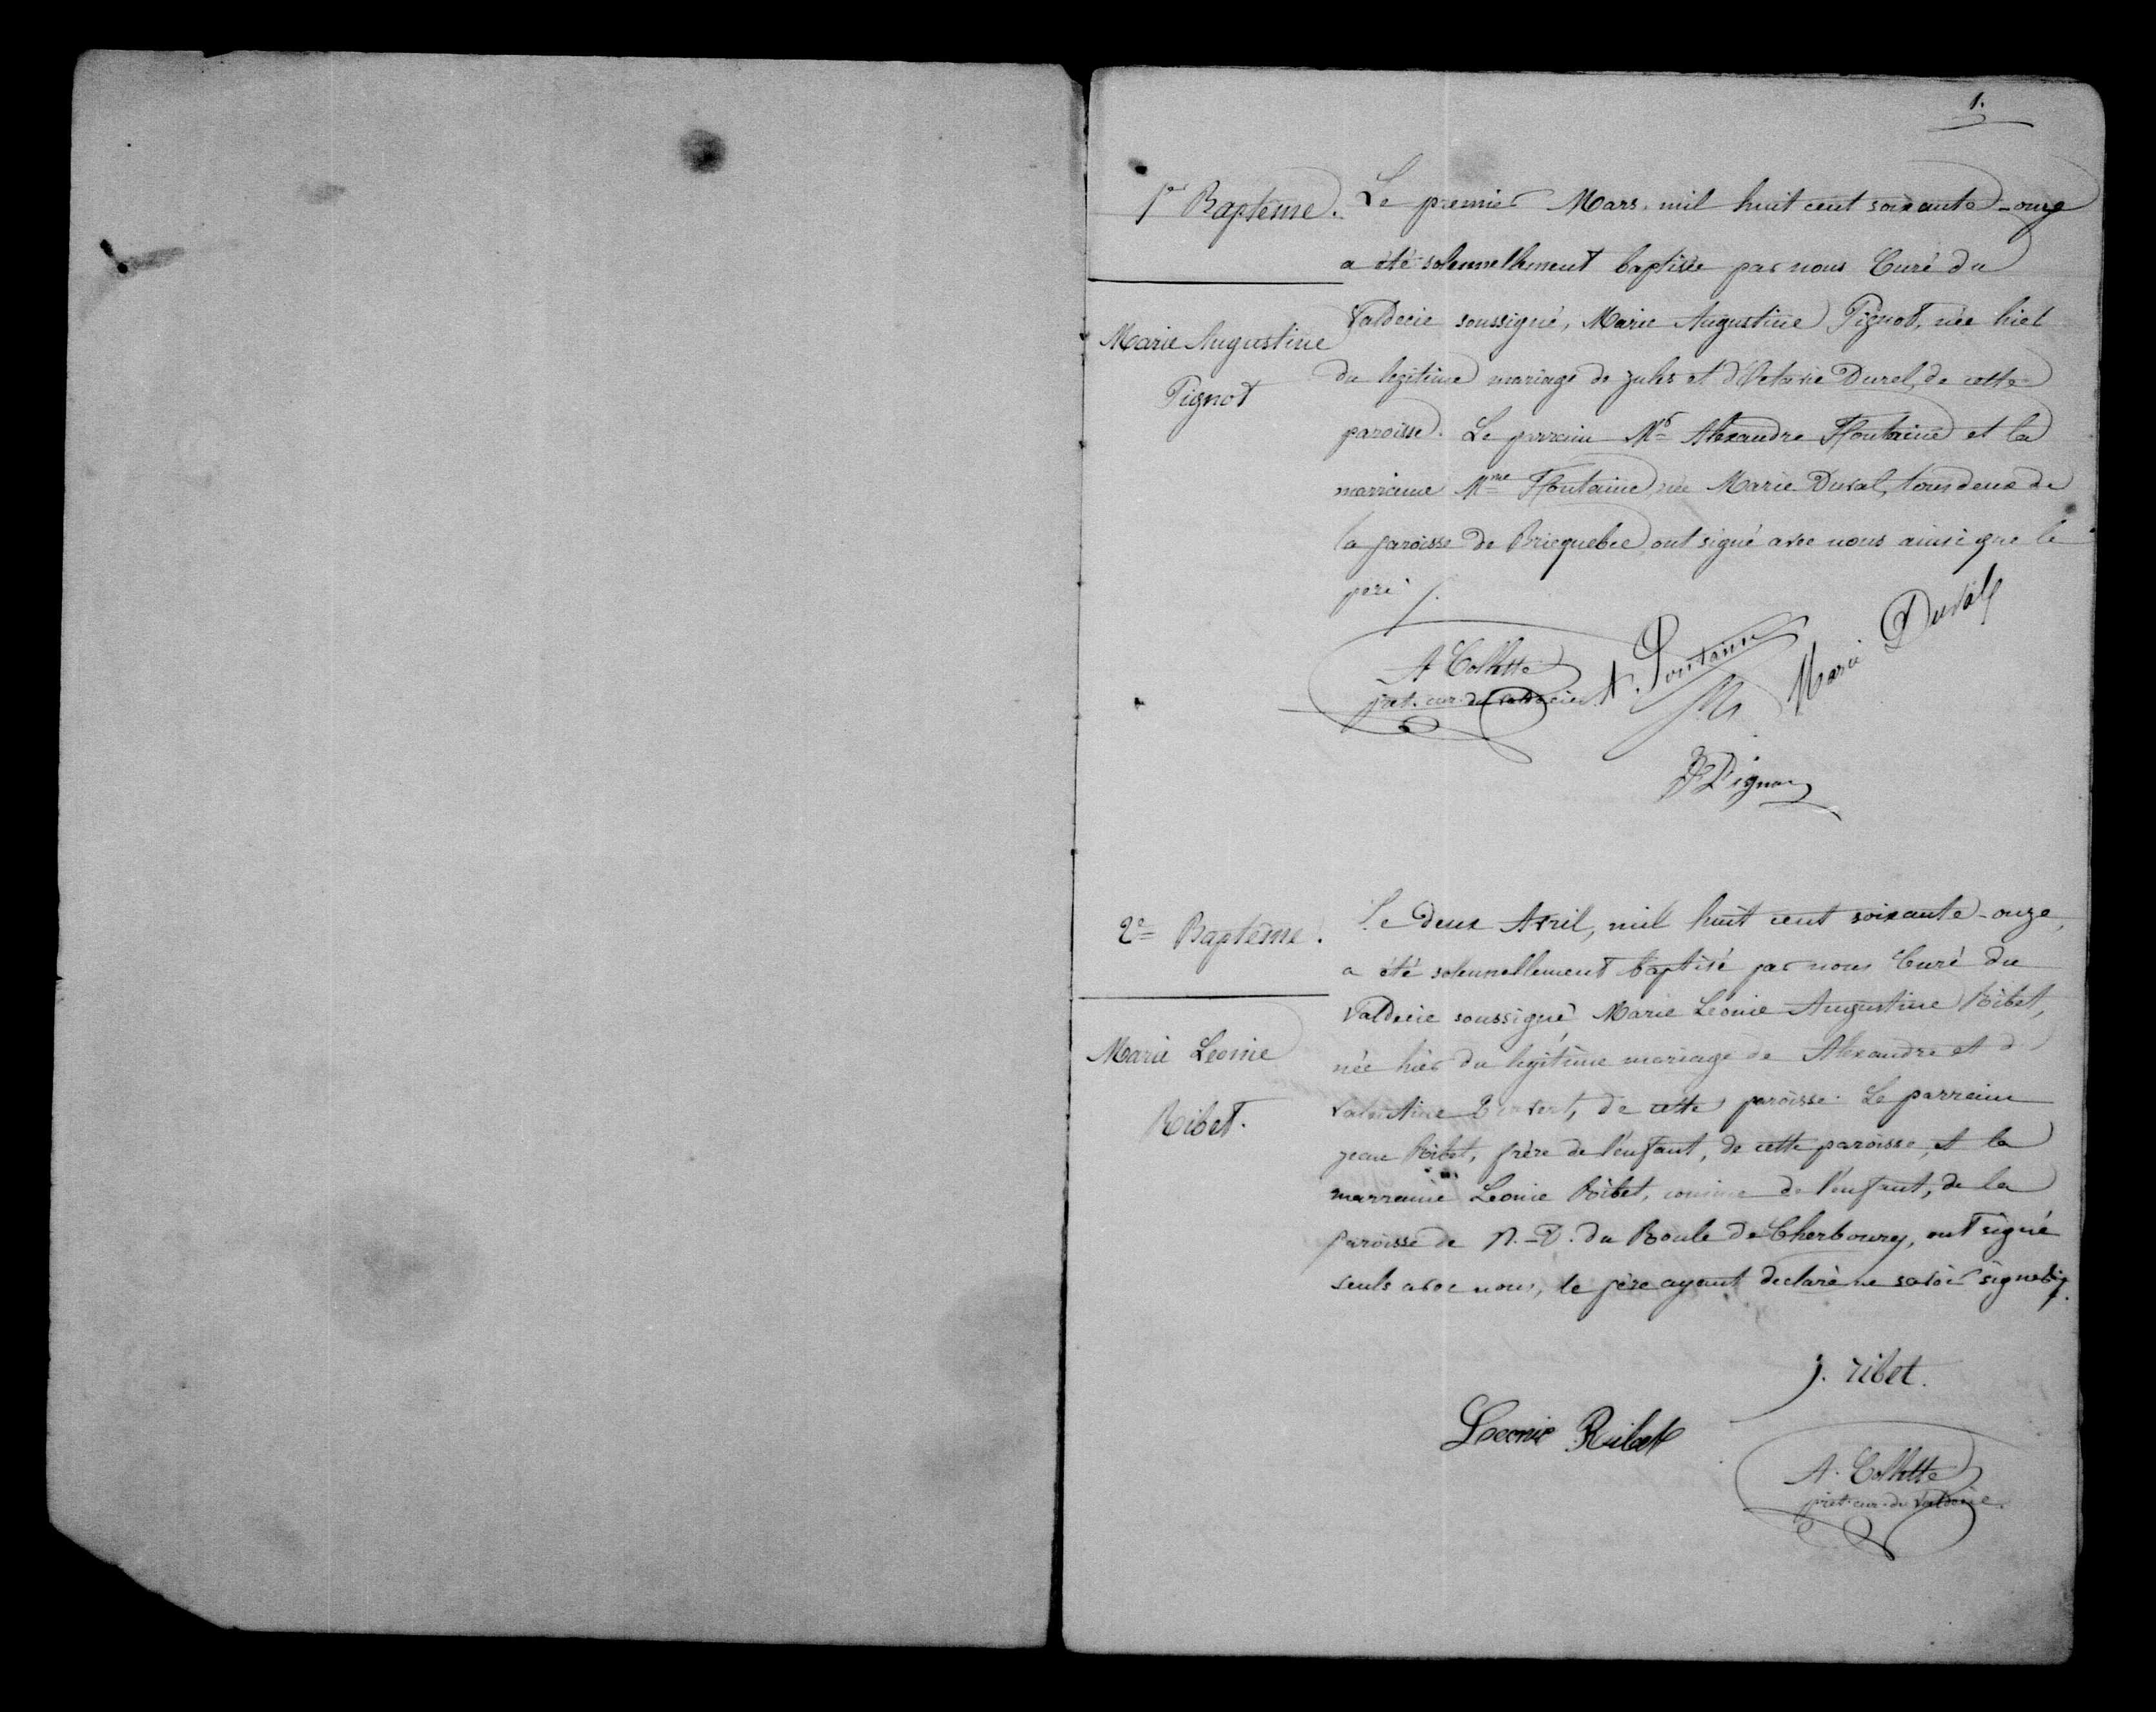 1.
1er Baptême.
Marie Augustine
Pignot
Le premier Mars mil huit cent soixante-onze
a été solennellement baptisée par nous Curé du
Valdecie soussigné, Marie Augustine Pignot, née hier
du légitime mariage de Jules et d'Octavie Durel, de cette
paroisse. Le parrain Mr Alexandre Ffontaine et la
marraine Mme Ffontaine, née Marie Duval, tous deux de
la paroisse de Bricquebec, ont signé avec nous ainsi que le
père
A Collette
pret. cur. du Valdecie
A. Fontaine
Marie Duval
Pignot
2e Baptême.
Marie Leonie
Ribet.
Le deux Avril, mil huit cent soixante-onze,
a été solennellement baptisé par nous Curé du
Valdecie soussigné, Marie Léonie Augustine Ribet,
née hier du légitime mariage de Alexandre et d
Valentine de cette paroisse. Le parrain
Jean Ribet, frère de l'enfant, de cette paroisse, et la
marraine Leonie Ribet, cousine de l'enfant, de la
paroisse de N.-D. du Roule de Cherbourg, ont signé
seuls avec nous, le père ayant declaré ne savoir signer
j. ribet.
Leonie Ribet
A. Collette
pret. cur. du Valdecie.